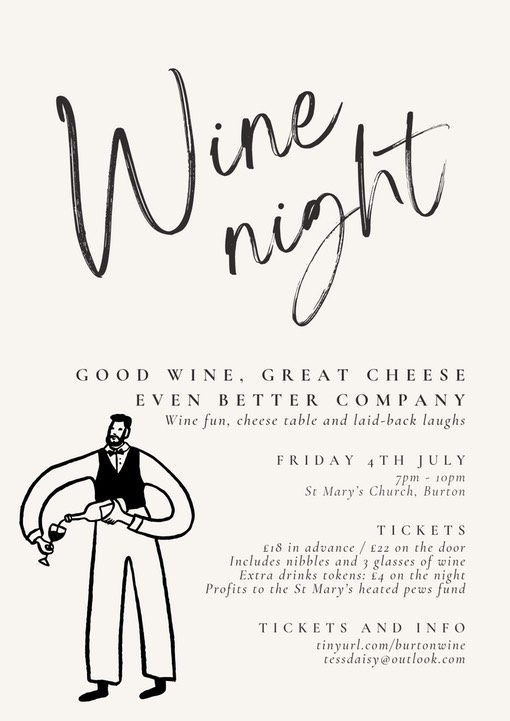 Wine
night
GOOD WINE, GREAT CHEESE
EVEN BETTER COMPANY
Wine fun, cheese table and laid-back laughs
FRIDAY 4TH JULY
7pm - 10pm
St Mary's Church, Burton
TICKETS
£18 in advance / £22 on the door
Includes nibbles and 3 glasses of wine
Extra drinks tokens: £4 on the night
Profits to the St Mary's heated pews fund
TICKETS AND INFO
tinyurl.com/burtonwine
tessdaisy@outlook.com